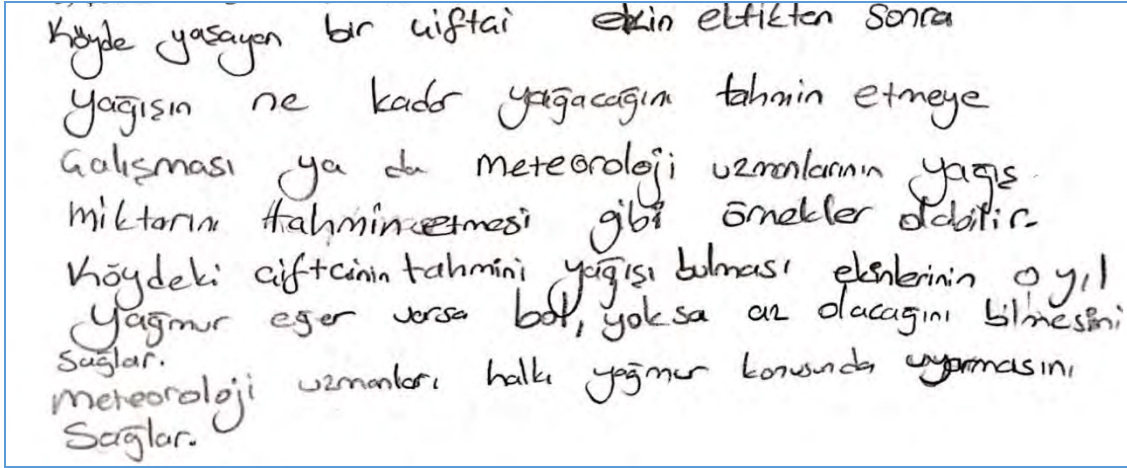 Köyde yaşayan bir çiftçi ekin ektikten sonra
Yağışın ne kadar yağacağını tahmin etmeye
Çalışması ya da meteoroloji uzmanlarının yağış
miktarını tahmin etmesi gibi örnekler olabilir.
Köydeki çiftçinin tahmini yağışı bulması ekinlerinin o yıl
Yağmur eğer varsa bol, yoksa az olacağını bilmesini
Sağlar.
meteoroloji uzmanları halkı yağmur konusunda uyarmasını
Sağlar.